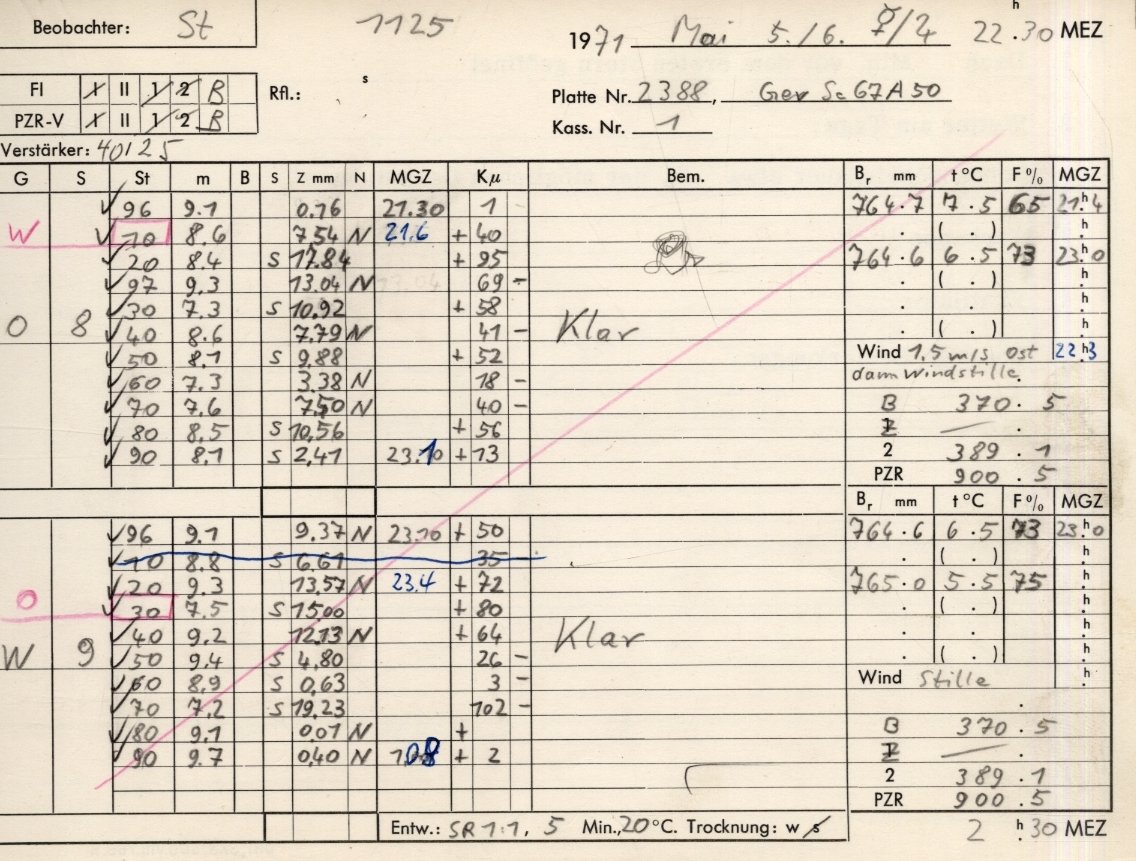 Beobachter: St 1125 1971 Mai 5./6. ☿/2 22.h30 MEZ
FI I II 1 2 B Rfl.: s Platte Nr. 2388, Gev Sc 67A50
PZR-V I II 1 2 B Kass. Nr. 1
Verstärker: 40125
G S St m B S Z mm N MGZ Kμ Bem. Br mm t °C F % MGZ
96 9.1 0.16 21.30 1 764.7 7.5 65 21.h4
W 10 8.6 7.54 N 21.6 + 40 . ( . ) h.
20 8.4 S 17.84 + 95 764.6 6.5 73 23.h0
97 9.3 13.04 N 69 – . ( . ) h.
30 7.3 S 10,92 + 58 . . h.
O 8 40 8.6 7.79 N 41 – Klar . ( . ) h.
50 8.1 S 9.88 + 52 Wind 1,5 m/s Ost 22.h3
60 7.3 3.38 N 18 – dann Windstille.
70 7.6 7,50 N 40 – B 370.5
80 8,5 S 10,56 + 56 1 — .
90 8,1 S 2,41 23.10 + 13 2 389.1
PZR 900.5
Br mm t °C F % MGZ
96 9.1 9.37 N 23.10 + 50 764.6 6.5 73 23.h0
10 8.8 S 6.61 35 . ( . ) h.
20 9.3 13,57 N 23.4 + 72 765.0 5.5 75 h.
O 30 7.5 S 15,00 + 80 . ( . ) h.
40 9.2 12,13 N + 64 Klar . . h.
W 9 50 9.4 S 4,80 26 – . ( . ) h.
60 8,9 S 0,63 3 – Wind Stille h.
70 7,2 S 19,23 102 – .
80 9.1 0,01 N + B 370.5
90 9.7 0,40 N + 2 1 — .
2 389.1
PZR 900.5
Entw.: SR 1:1, 5 Min., 20 °C. Trocknung: w s 2 h.30 MEZ